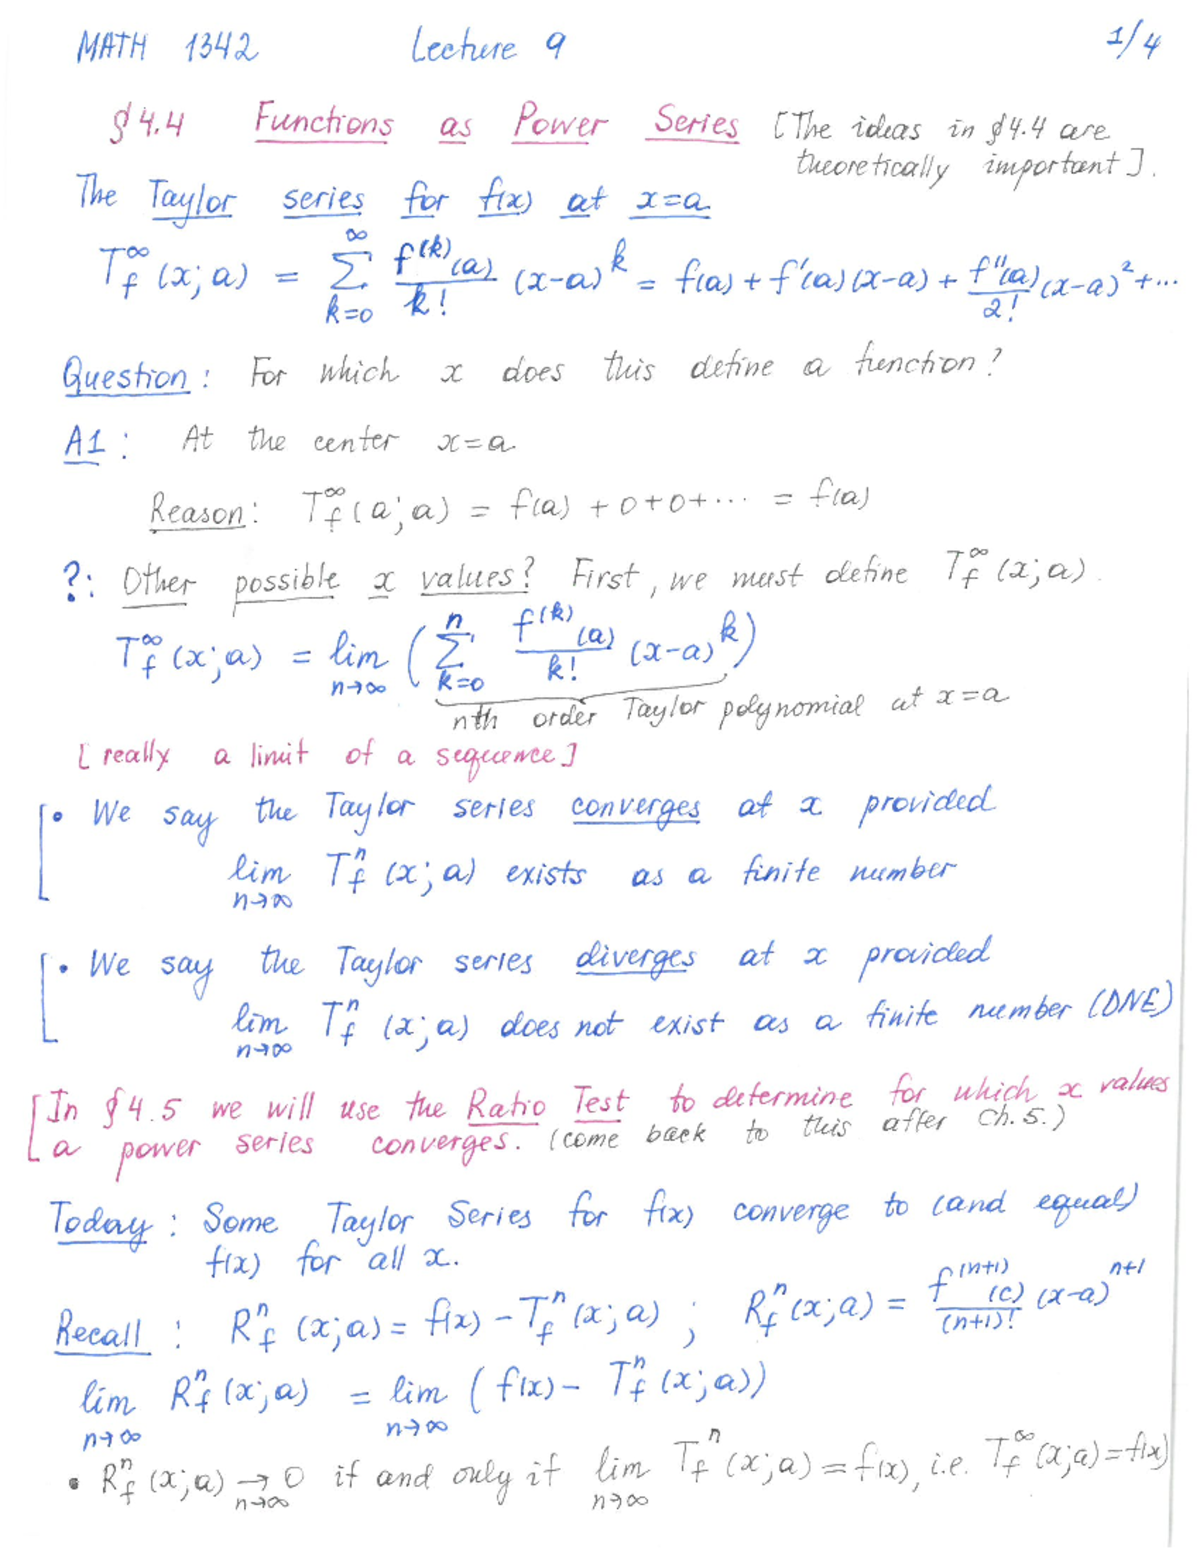 MATH 1342 Lecture 9 1/4
§4.4 Functions as Power Series [The ideas in §4.4 are
theoretically important].
The Taylor series for f(x) at x=a
T_f^∞(x;a) = ∑_{k=0}^{∞} f^{(k)}(a)/k! (x-a)^k = f(a) + f'(a)(x-a) + f''(a)/2! (x-a)^2 + ...
Question: For which x does this define a function?
A1: At the center x=a
Reason: T_f^∞(a;a) = f(a) + 0+0+... = f(a)
?: Other possible x values? First, we must define T_f^∞(x;a).
T_f^∞(x;a) = lim_{n→∞} (∑_{k=0}^{n} f^{(k)}(a)/k! (x-a)^k)
nth order Taylor polynomial at x=a
[really a limit of a sequence]
• We say the Taylor series converges at x provided
lim_{n→∞} T_f^n(x;a) exists as a finite number
• We say the Taylor series diverges at x provided
lim_{n→∞} T_f^n(x;a) does not exist as a finite number (DNE)
[In §4.5 we will use the Ratio Test to determine for which x values
a power series converges. (come back to this after Ch.5.)
Today: Some Taylor Series for f(x) converge to (and equal)
f(x) for all x.
Recall: R_f^n(x;a) = f(x) - T_f^n(x;a) ; R_f^n(x;a) = f^{(n+1)}(c)/(n+1)! (x-a)^{n+1}
lim_{n→∞} R_f^n(x;a) = lim_{n→∞} (f(x) - T_f^n(x;a))
• R_f^n(x;a) →_{n→∞} 0 if and only if lim_{n→∞} T_f^n(x;a) = f(x), i.e. T_f^∞(x;a)=f(x)